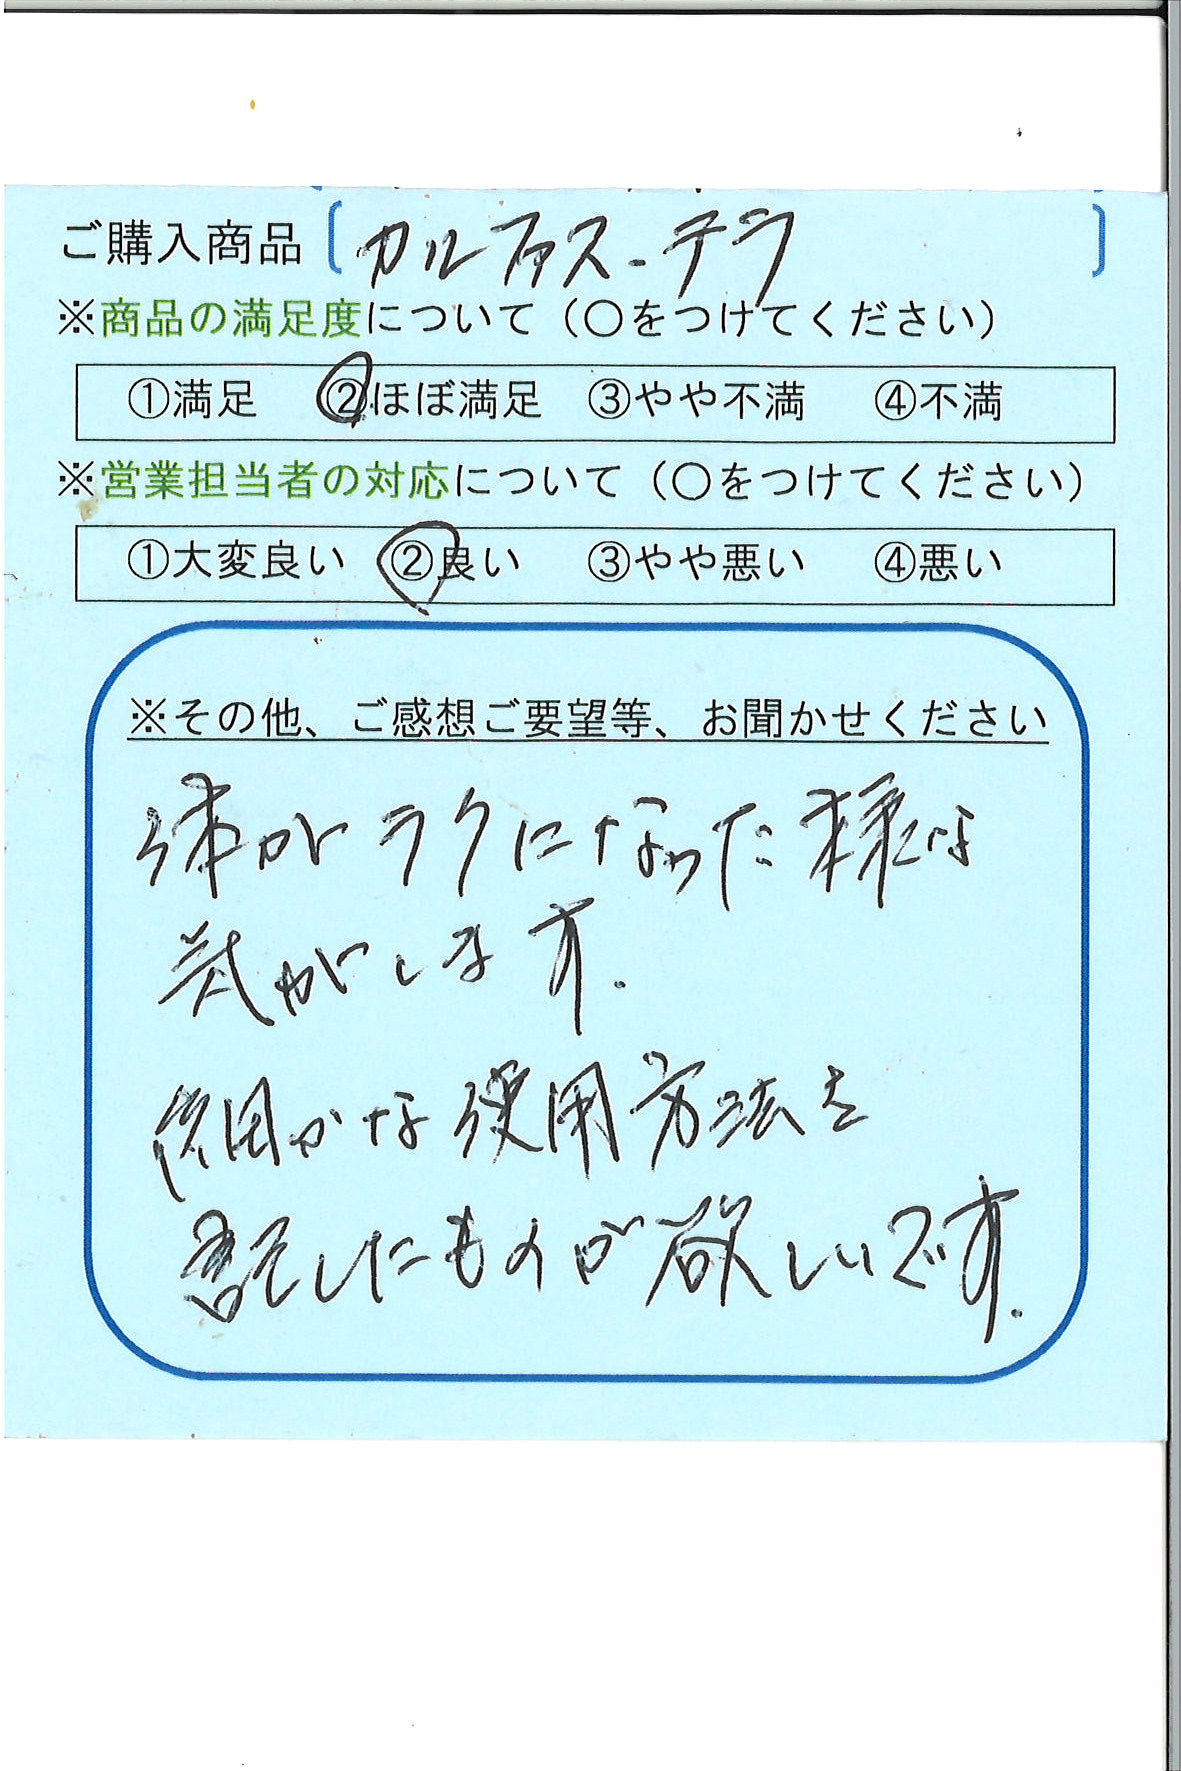 ご購入商品［カルファス・テラ］
※商品の満足度について（○をつけてください）
①満足 ②ほぼ満足 ③やや不満 ④不満
※営業担当者の対応について（○をつけてください）
①大変良い ②良い ③やや悪い ④悪い
※その他、ご感想ご要望等、お聞かせください
体がラクになった様な
気がします.
細かな使用方法を
記したものが欲しいです.